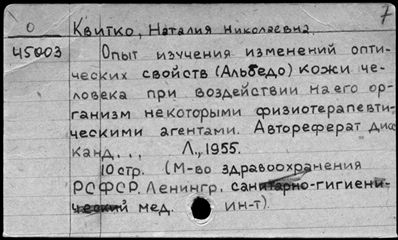 7
О Квитко, Наталия Николаевна.
45003 Опыт изучения изменений опти-
ческих свойств (Альбедо) кожи че-
ловека при воздействии на его ор-
ганизм некоторыми физиотерапевти-
ческими агентами. Автореферат дис
канд... Л., 1955.
10 стр. (М-во здравоохранения
РСФСР. Ленингр. санитарно-гигиени-
ческий мед. ин-т).